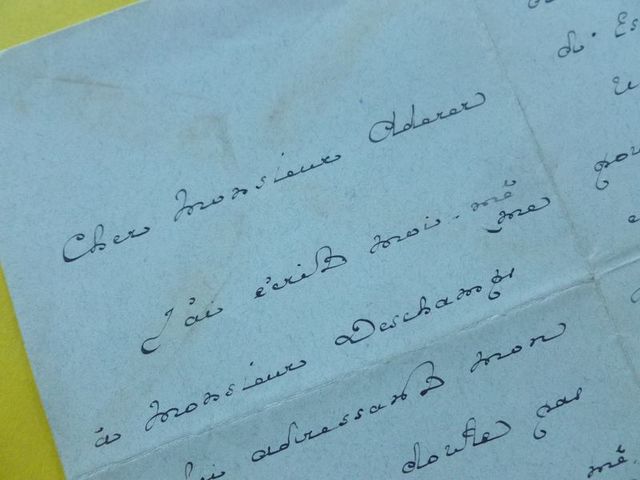 Cher Monsieur Aderer
J'ai écrit moi-mê
me
à Monsieur Deschamps
lui adressant mon
doute pas
mê
pou
d'Es